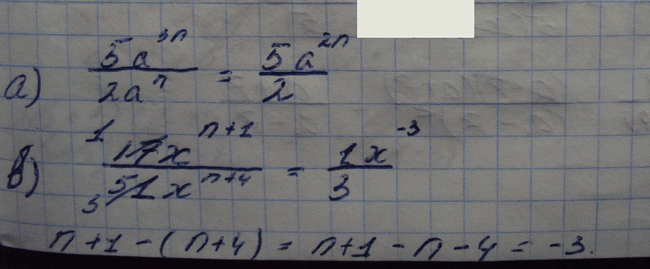 а) 5a^3n / 2a^n = 5a^2n / 2
в) 1 17x^n+1 / 3 51x^n+4 = 1x^-3 / 3
n+1-(n+4) = n+1-n-4 = -3.